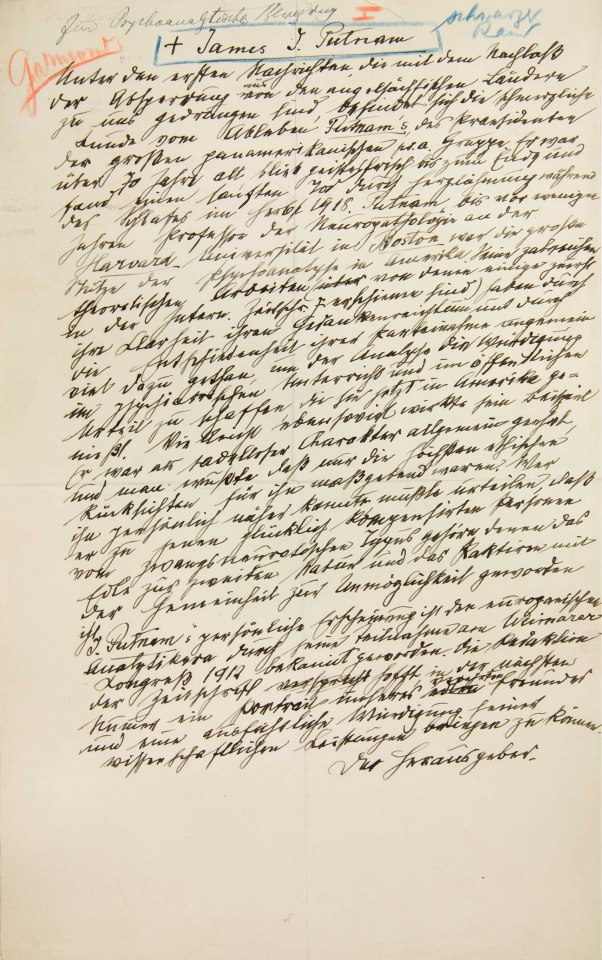 Für Psychoanalytische Bewegung I
schwarzer Rand
Garmond
+ James J. Putnam
Unter den ersten Nachrichten, die mit dem Nachlaß
der Absperrung aus den angelsächsischen Ländern
zu uns gedrungen sind, befindet sich die schmerzliche
Kunde vom Ableben Putnam's, des Praesidenten
der großen panamerikanischen ψα. Gruppe. Er war
über 70 Jahre alt, blieb geistesfrisch bis zum Ende und
fand einen sanften Tod durch Herzlähmung während
des Schlafes im Herbst 1918. Putnam, bis vor wenigen
Jahren Professor der Neuropathologie an der
Harvard-Universität in Boston, war die große
Stütze der Psychoanalyse in Amerika. Seine zahlreichen
theoretischen Arbeiten (von denen einige zuerst
in der Intern. Zeitschr. erschienen sind) haben durch
ihre Klarheit, ihren Gedankenreichtum und durch
die Entschiedenheit ihrer Parteinahme ungemein
viel dazu gethan, um der Analyse die Würdigung
im psychiatrischen Unterricht und im öffentlichen
Urteil zu schaffen, die sie jetzt in Amerika ge-
nießt. Vielleicht ebensoviel wirkte sein Beispiel.
Er war als tadelloser Charakter allgemein geehrt,
und man wußte, daß nur die höchsten ethischen
Rücksichten für ihn maßgebend waren. Wer
ihn persönlich näher kannte, mußte urteilen, daß
er zu jenen glücklich kompensirten Personen
vom zwangsneurotischen Typus gehöre, denen das
Edle zur zweiten Natur und das Paktiren mit
der Gemeinheit zur Unmöglichkeit geworden
ist.
J. Putnam's persönliche Erscheinung ist den europaeischen
Analytikern durch seine Teilnahme am Weimarer
Kongreß 1912 bekannt geworden. Die Redaktion
der Zeitschrift verspricht hofft, in der nächsten
Numer ein Portrait unseres verehrten edlen Freundes
und eine ausführliche Würdigung seiner
wissenschaftlichen Leistungen bringen zu können.
Der Herausgeber.